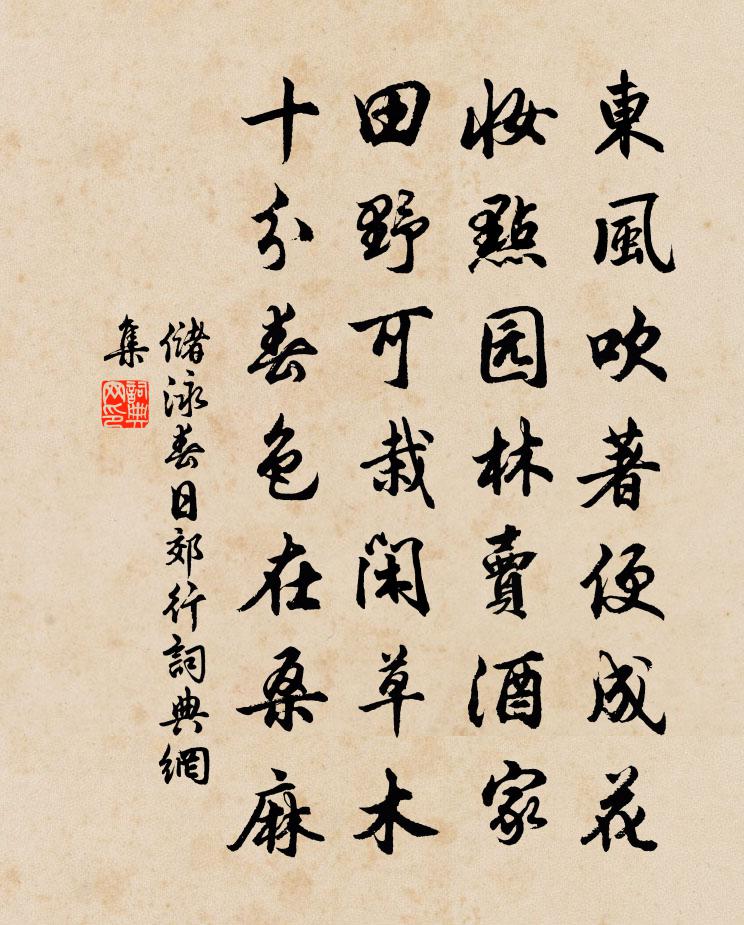 東風吹著便成花
妝點园林賣酒家
田野可栽閑草木
十分春色在桑麻
儲泳春日郊行詞典網
集
詞典網印